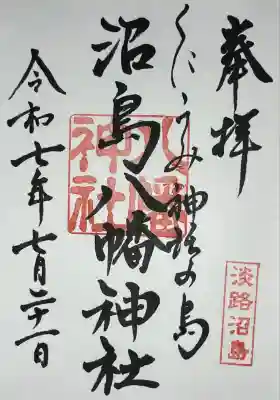 奉拝
くにうみ神話の島
沼島八幡神社
令和七年七月二十一日
八幡
神社
淡路沼島